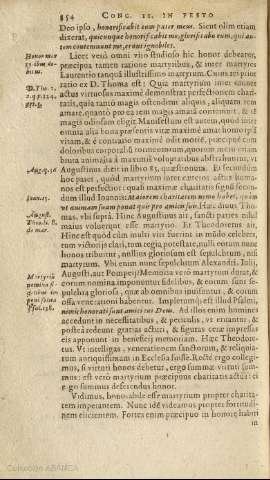 854 CONC. II. IN FESTO
Deo ipso, honorificabit eum pater meus. Sicut olim etiam
dixerat, quicunque honorificabit me, glorificabo eum, qui au-
tem contemnunt me, erunt ignobiles.
Licet verò omni viro studioso hic honor debeatur,
præcipua tamen ratione martyribus, & inter martyres
Laurentio tanquã illustrissimo martyrum. Cuius rei prior
ratio ex D. Thoma est: Quia martyrium inter omnes
actus virtuosos maximè demonstrat perfectionem chari-
tatis, quia tantò magis ostendimus aliquis, aliquam rem
amare, quantò pro ea rem magis amatã contemnit, & rẽ
magis odiosam eligit. Manifestum est autem, quod inter
omnia alia bona præsentis vitæ maximè amat homo ipsã
vitam, & è contrario maximè odit mortẽ, præcipuè cum
doloribus corporaliũ tormentorum, quorum metu etiam
bruta animalia à maximis voluptatibus abstrahuntur, vt
Augustinus dicit in libro 83. quæstionum. Et secundum
hoc patet, quòd martyrium inter cæteros actus huma-
nos est perfectior: quasi maximæ charitatis signũ secun-
dum illud Ioannis: Maiorem charitatem nemo habet, quàm
vt animam suam ponat quis pro amicis suis. Hæc diuus Tho-
mas. vbi suprà. Hinc Augustinus ait, sancti patres nihil
maius voluerunt esse martyrio. Et Theodoretus ait,
Hinc est quòd cùm multi viri fuerint in mũdo celebres,
tum victorijs clari, tum regia potestate, nulli eorum nunc
honos tribuitur, nullius gloriosum est sepulchrum, nisi
martyrum. Vbi enim nunc sepulchrum Alexandri, Iulij,
Augusti, aut Pompeij? Memoria verò martyrum durat, &
eorum nomina imponuntur fidelibus, & eorum sunt se-
pulchra gloriosa, quæ ab omnibus inuisuntur, & eorum
ossa venerationi habentur. Impletumq́; est illud Psalmi,
nimis honorati sunt amici tui Deus. Ad illos enim homines
accedunt in necessitatibus, & periculis, vt iuuantur, &
postea redeunt gratias acturi, & figuras ceræ impressas
eis apponunt in beneficij memoriam. Hæc Theodore-
tus. Vt intelligas, venerationem sanctorum, & reliquia-
rum antiquissimam in Ecclesia fuisse. Rectè ergo collegi-
mus, si virtuti honos debetur, ergo summæ virtuti sum-
mus: est verò martyrium præcipuus charitatis actus: ei
ergo summus deferendus honor.
Vidimus, honorabile esse martyrium propter charita-
tem imperantem. Nunc idẽ videamus propter fortitudi-
nem elicientem. Fortes enim præcipuo in honore habiti
in
August. 50
Ioann. 15.
Colección ABANCA